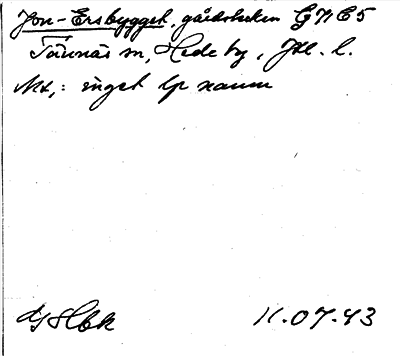 Jon-Ersbygget, gårdsboken G71E5
Tännäs sn, Hede by, Jtl. l.
Mt,: inget lp namn
11.07.43